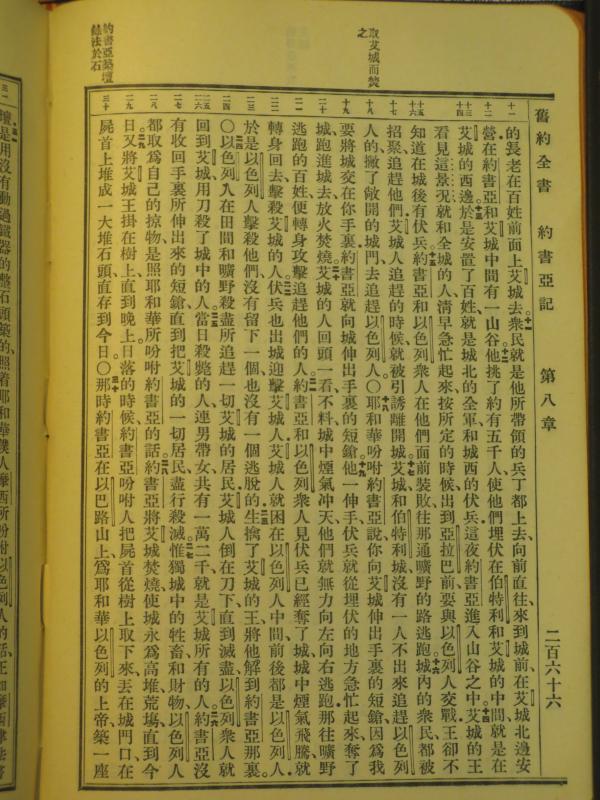 舊約全書　約書亞記　第八章　二百六十六
取艾城而焚之
約書亞築壇錄法於石
十一
的長老在百姓前面上艾城去。十一衆民就是他所帶領的兵丁都上去、向前直往、來到城前、在艾城北邊安
十二
營、在約書亞和艾城中間有一山谷。十二他挑了約有五千人、使他們埋伏在伯特利和艾城的中間、就是在
十三
十四
艾城的西邊。十三於是安置了百姓、就是城北的全軍、和城西的伏兵、這夜約書亞進入山谷之中。十四艾城的王
看見這景況、就和全城的人、淸早急忙起來、按所定的時候、出到亞拉巴前、要與以色列人交戰、王卻不
十五
十六
知道在城後有伏兵。十五約書亞和以色列衆人在他們面前裝敗、往那通曠野的路逃跑。十六城內的衆民都被
十七
招聚、追趕他們、艾城人追趕的時候、就被引誘離開城。十七艾城和伯特利城、沒有一人不出來追趕以色列
十八
人的、撇了敞開的城門、去追趕以色列人。〇十八耶和華吩咐約書亞說、你向艾城伸出手裏的短鎗、因爲我
十九
要將城交在你手裏、約書亞就向城伸出手裏的短鎗。十九他一伸手、伏兵就從埋伏的地方急忙起來、奪了
二十
城、跑進城去、放火焚燒。二十艾城的人回頭一看、不料、城中煙氣沖天、他們就無力向左向右逃跑、那往曠野
二一
逃跑的百姓便轉身攻擊追趕他們的人。二一約書亞和以色列衆人見伏兵已經奪了城、城中煙氣飛騰、就
二二
轉身回去擊殺艾城的人。二二伏兵也出城迎擊艾城人、艾城人就困在以色列人中間、前後都是以色列人、
二三
於是以色列人擊殺他們、沒有留下一個、也沒有一個逃脫的。二三生擒了艾城的王、將他解到約書亞那裏。
二四
〇二四以色列人在田間和曠野殺盡所追趕一切艾城的居民、艾城人倒在刀下直到滅盡、以色列衆人就
二五
二六
回到艾城、用刀殺了城中的人。二五當日殺斃的人、連男帶女、共有一萬二千、就是艾城所有的人。二六約書亞沒
二七
有收回手裏所伸出來的短鎗、直到把艾城的一切居民盡行殺滅。二七惟獨城中的牲畜和財物、以色列人
二八
都取爲自己的掠物、是照耶和華所吩咐約書亞的話。二八約書亞將艾城焚燒、使城永爲高堆荒塲、直到今
二九
日。二九又將艾城王掛在樹上、直到晚上、日落的時候、約書亞吩咐人把屍首從樹上取下來、丟在城門口、在
三十
屍首上堆成一大堆石頭、直存到今日。〇三十那時約書亞在以巴路山上、爲耶和華以色列的上帝築一座
三一
壇、三一是用沒有動過鐵器的整石頭築的、照着耶和華僕人摩西所吩咐以色列人的話、正如摩西律法書